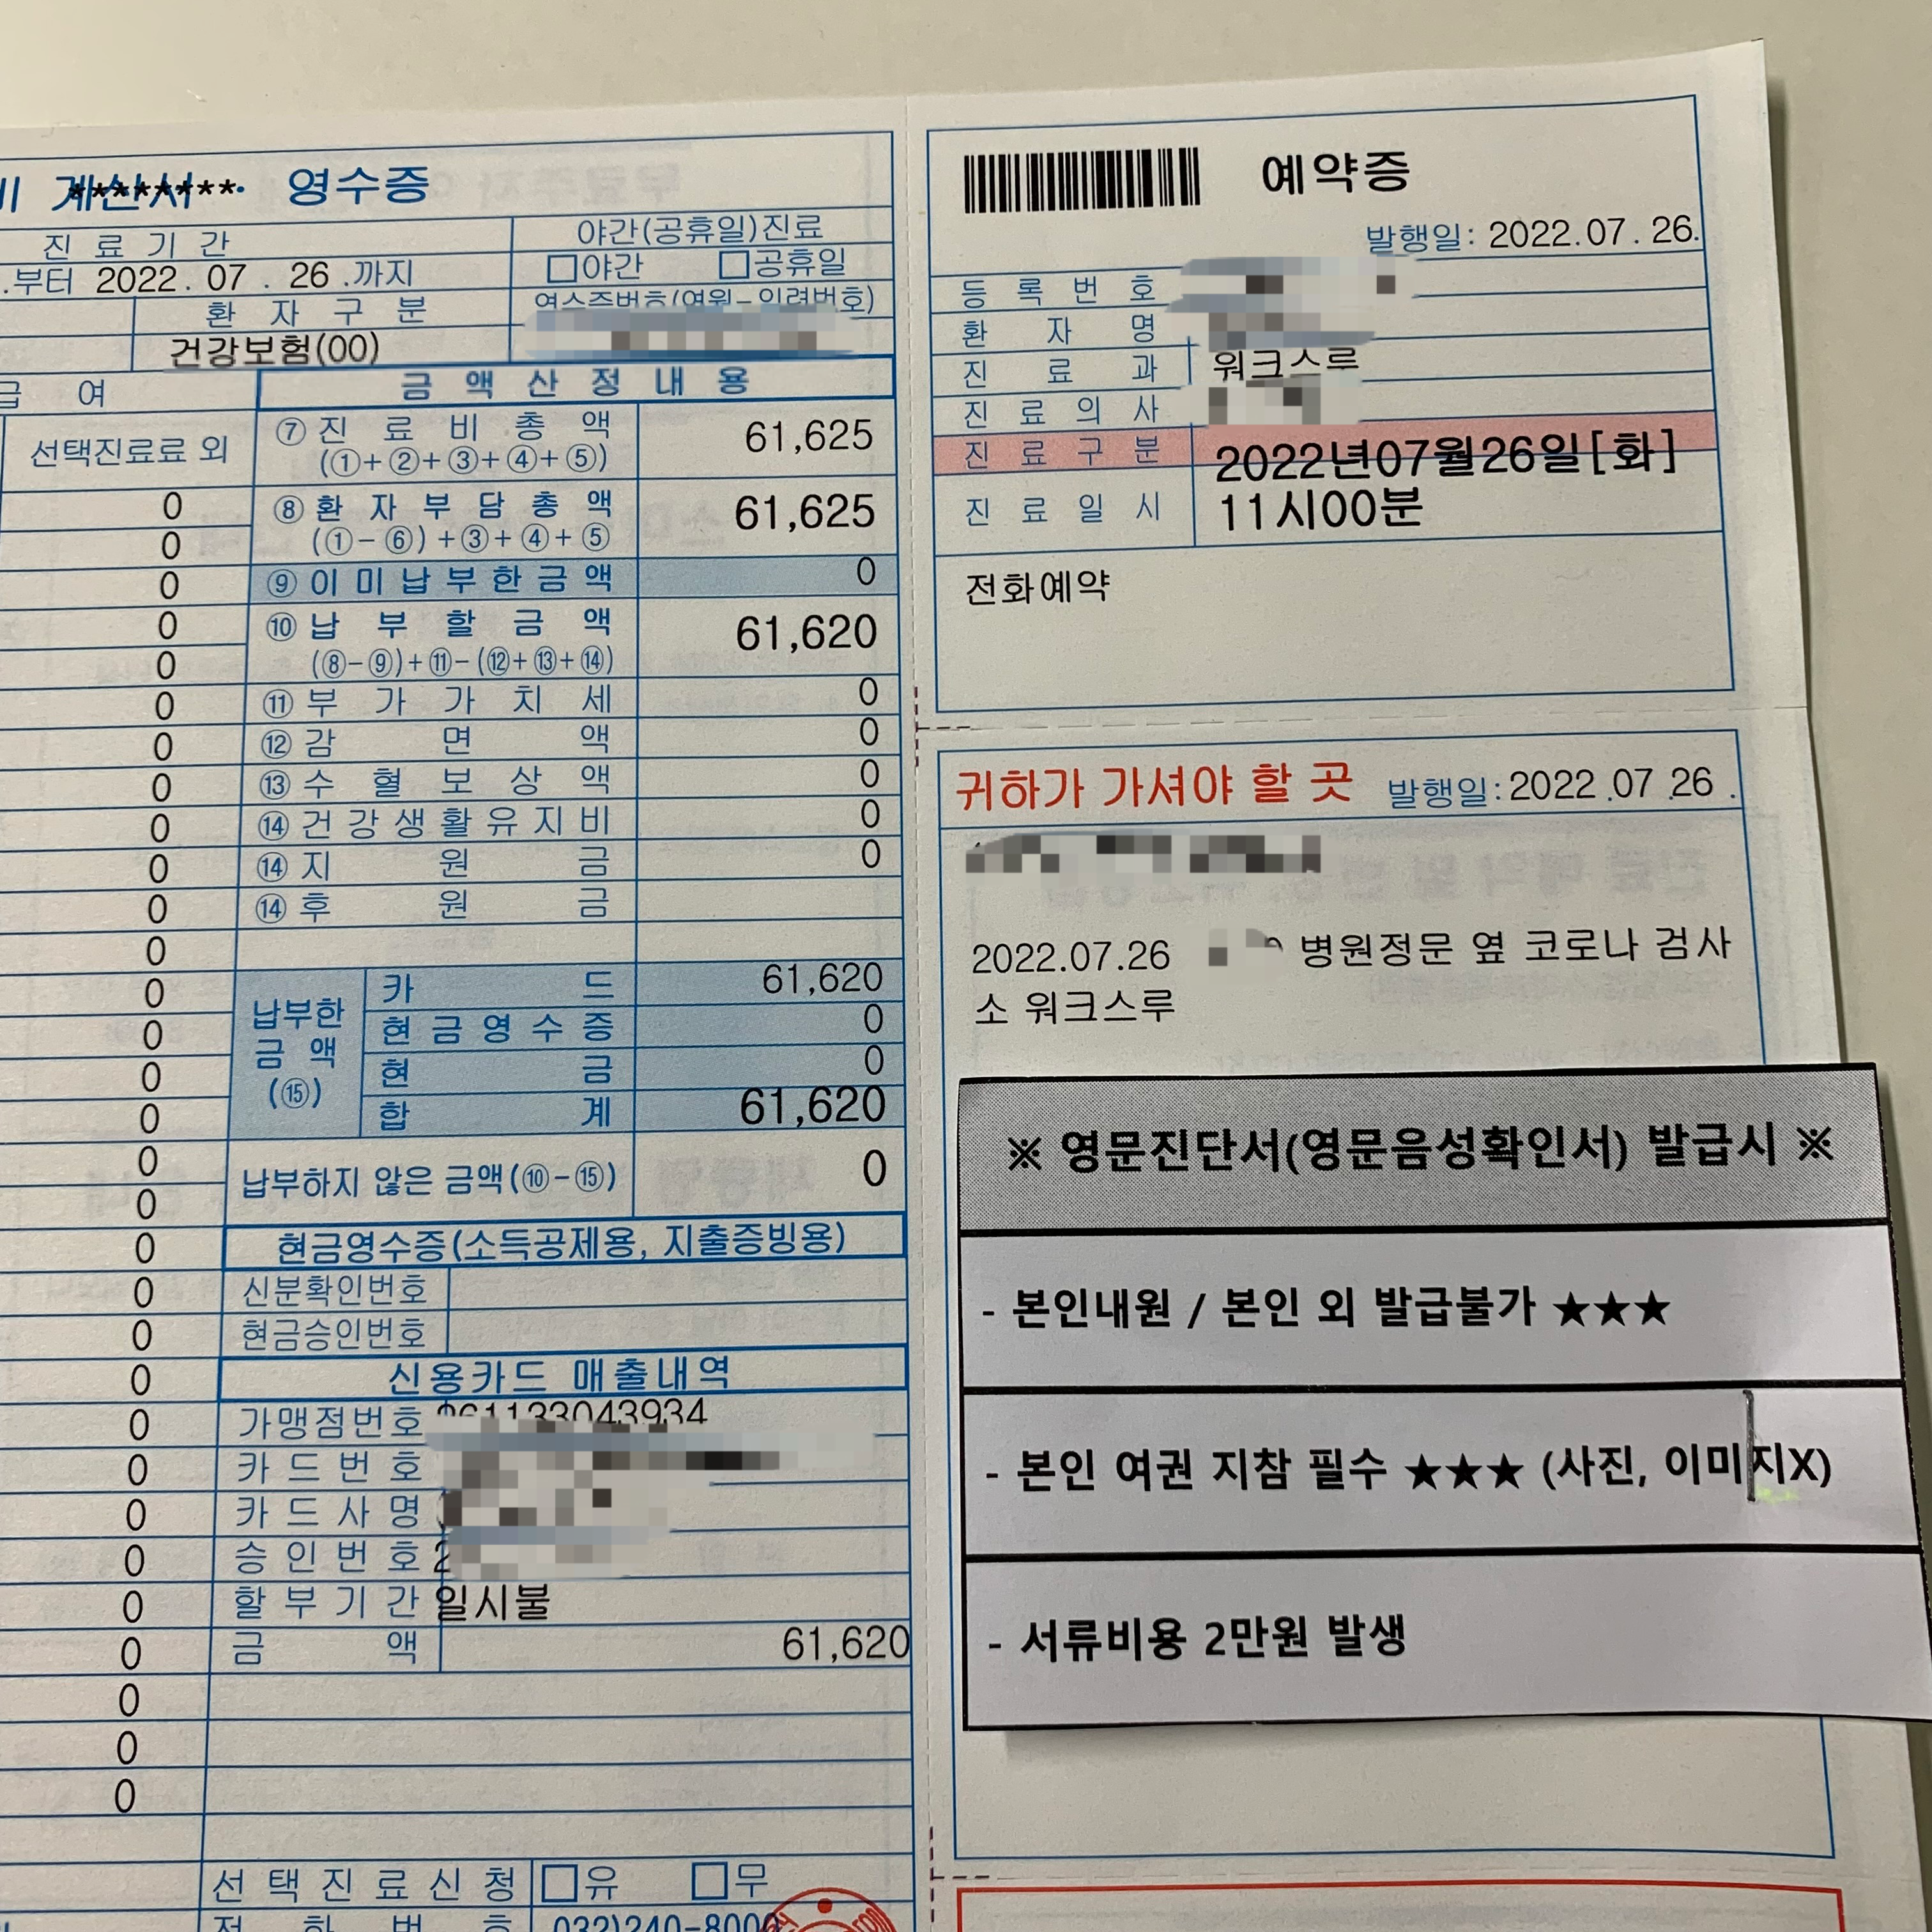 계산서 영수증
진료기간
야간(공휴일)진료
.부터 2022. 07 . 26 .까지
□야간 □공휴일
환자구분
영수증번호(연월-일련번호)
건강보험(00)
급 여
금액산정내용
선택진료료 외
⑦ 진료비총액 61,625
(①+②+③+④+⑤)
0
⑧ 환자부담총액 61,625
0
(①-⑥)+③+④+⑤
0
⑨ 이미납부한금액 0
0
⑩ 납부할금액 61,620
0
(⑧-⑨)+⑪-(⑫+⑬+⑭)
0
⑪ 부가가치세 0
0
⑫ 감면액 0
0
⑬ 수혈보상액 0
0
⑭ 건강생활유지비 0
0
⑭ 지원금 0
0
⑭ 후원금
0
0
납부한
금액
(⑮)
카드 61,620
0
현금영수증 0
0
현금 0
0
합계 61,620
0
납부하지 않은 금액(⑩-⑮) 0
0
0
현금영수증(소득공제용, 지출증빙용)
0
신분확인번호
0
현금승인번호
0
신용카드 매출내역
0
가맹점번호
0
카드번호
0
카드사명
0
승인번호 2
0
할부기간 일시불
0
금액 61,620
0
0
0
선택진료신청 □유 □무
전화번호 032)240-8000
예약증
발행일: 2022.07.26.
등록번호
환자명
진료과 워크스루
진료의사
진료구분 2022년07월26일[화]
진료일시 11시00분
전화예약
귀하가 가셔야 할 곳 발행일: 2022 .07 .26 .
2022.07.26 병원정문 옆 코로나 검사
소 워크스루
※ 영문진단서(영문음성확인서) 발급시 ※
- 본인내원 / 본인 외 발급불가 ★★★
- 본인 여권 지참 필수 ★★★ (사진, 이미지X)
- 서류비용 2만원 발생